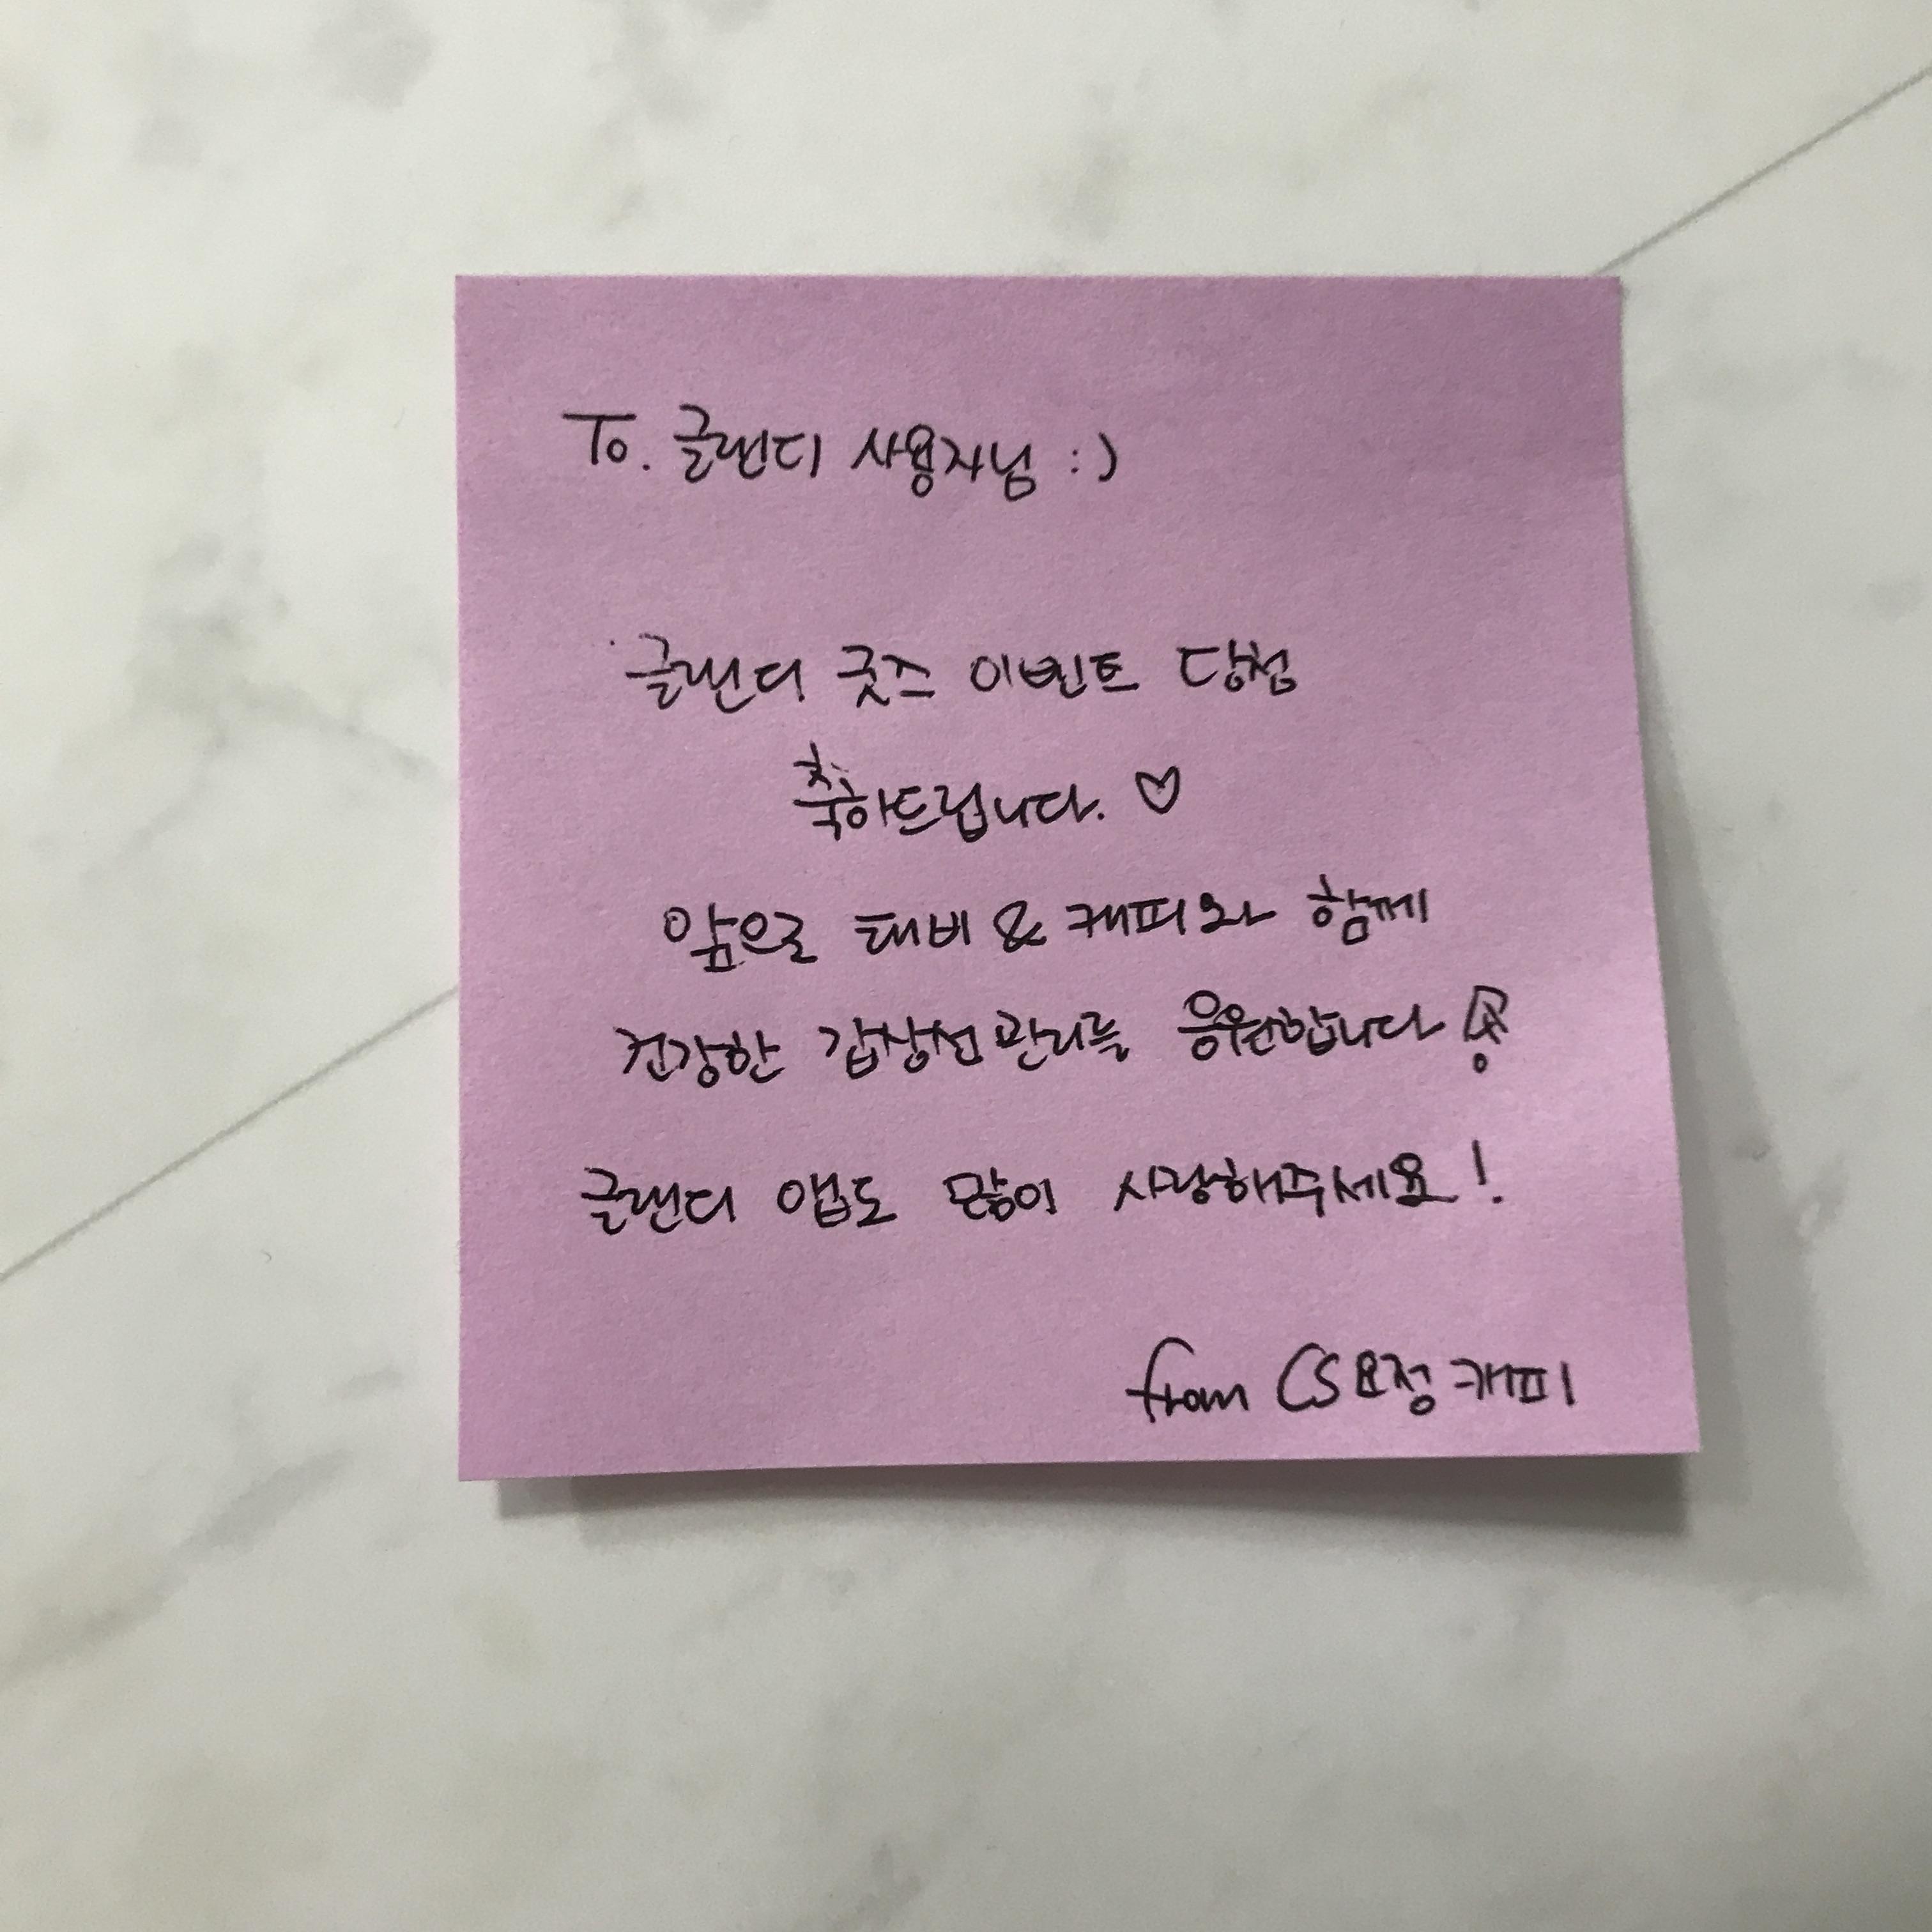 To. 글랜디 사용자님 :)
글랜디 굿즈 이벤트 당첨
축하드립니다. ♡
앞으로 태비 & 캐피와 함께
건강한 갑상선관리를 응원합니다
글랜디 앱도 많이 사랑해주세요!
from CS요정 캐피